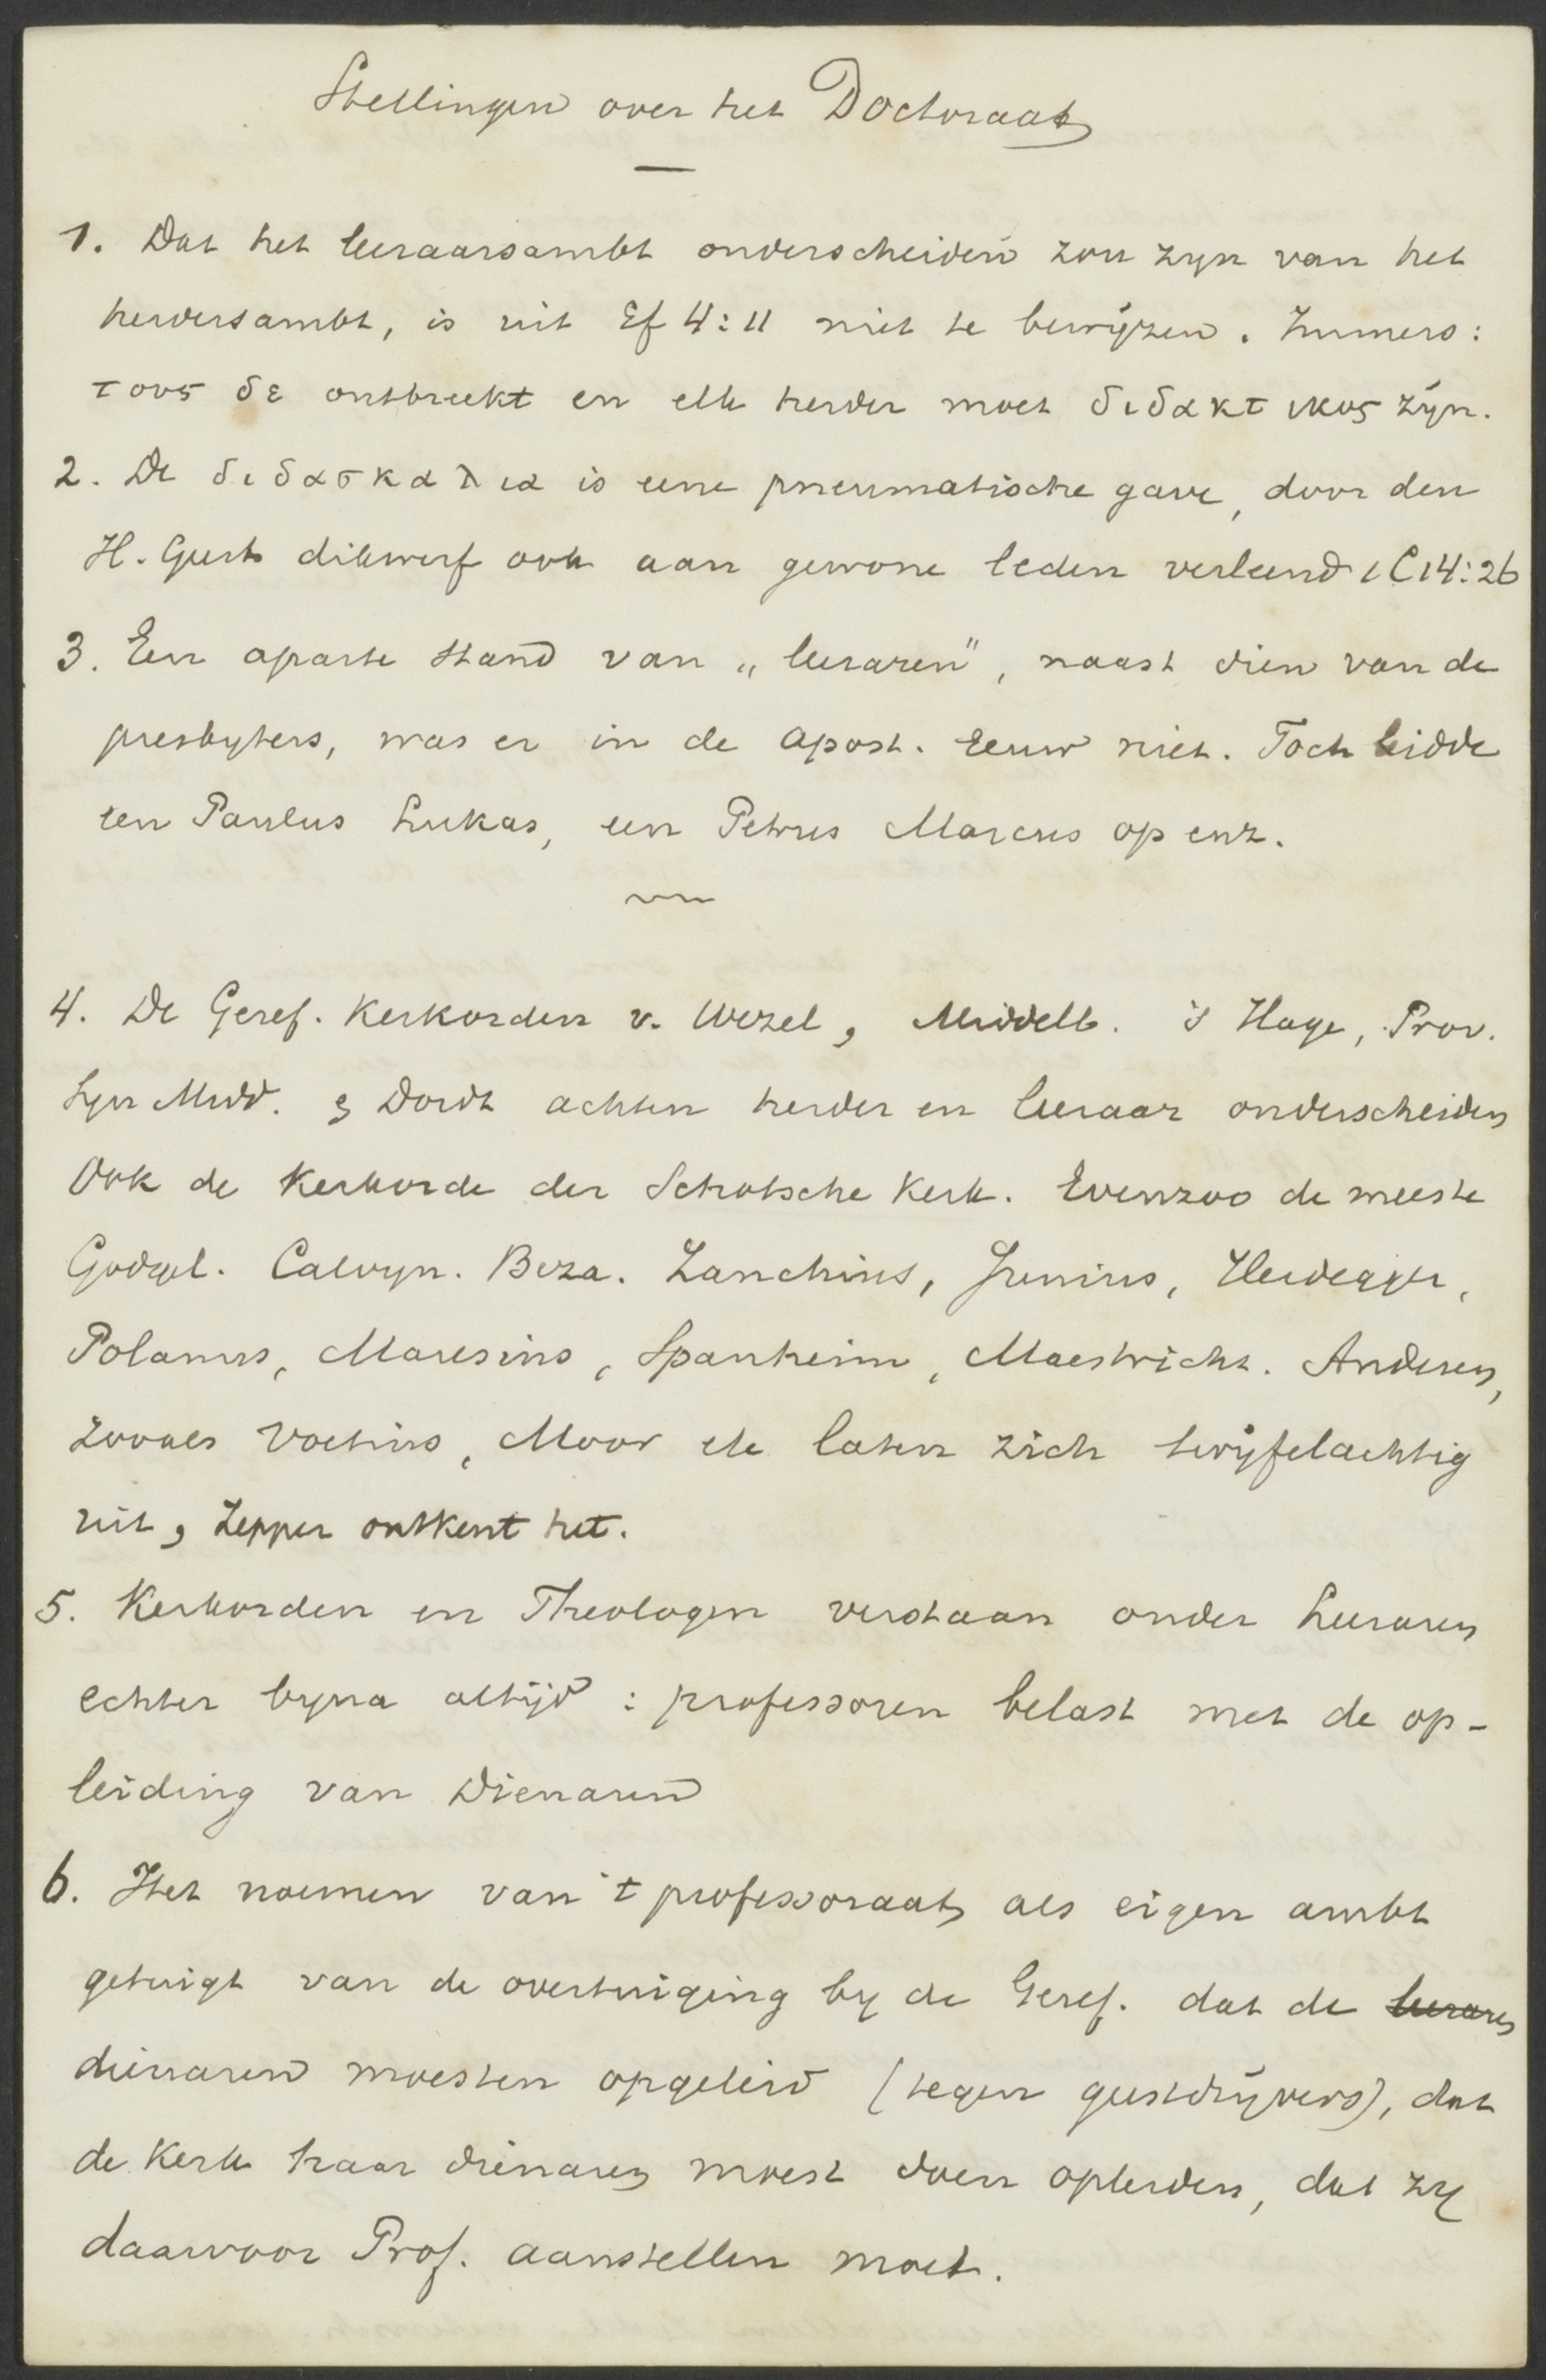 Stellingen over het Doctoraat
1. Dat het leeraarsambt onderscheiden zou zyn van het
herdersambt, is uit Ef 4:11 niet te bewijzen. Immers:
τους δε ontbreekt en elk herder moet διδακτικος zijn.
2. De διδασκαλια is eene pneumatische gave, door den
H. Geest dikwerf ook aan gewone leden verleend 1 C 14:26
3. Een aparte stand van „leeraren", naast dien van de
presbyters, was er in de apost. eeuw niet. Toch leidde
een Paulus Lukas, een Petrus Marcus op enz.
4. De Geref. Kerkorden v. Wezel, Middelb. 's Hage, Prov.
Syn Midd. & Dordt achten herder en leeraar onderscheiden
Ook de Kerkorde der Schotsche Kerk. Evenzoo de meeste
Godgel. Calvyn. Beza. Zanchius, Junius, Heidegger,
Polanus, Maresius, Spanheim, Maestricht. Anderen,
zooals Voetius, Moor etc laten zich twijfelachtig
uit, Zepper ontkent het.
5. Kerkorden en Theologen verstaan onder Leeraren
echter byna altijd : professoren belast met de op-
leiding van Dienaren
6. Het noemen van 't professoraat als eigen ambt
getuigt van de overtuiging by de Geref. dat de leeraren
dienaren moesten opgeleid (tegen geestdrijvers), dat
de Kerk haar dienaren moest doen opleiden, dat zy
daarvoor Prof. aanstellen moet.